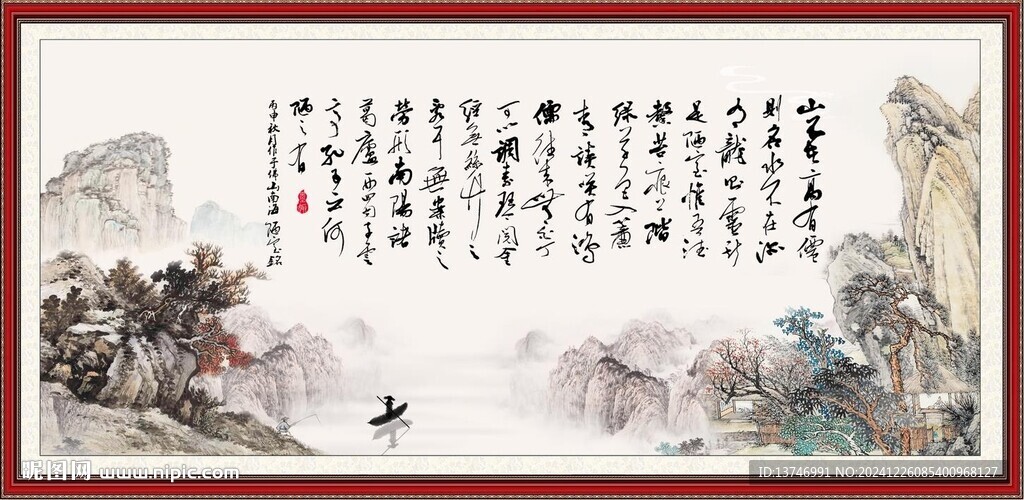 山不在高有僊
则名水不在深
有龍则靈斯
是陋室惟吾德
馨苔痕上階
绿草色入簾
青談笑有鴻
儒往来無白丁
可以調素琴閲金
经無絲竹之
乱耳無案牘之
勞形南陽諸
葛廬西蜀子雲
亭孔子云何
陋之有
丙申秋月作于佛山南海 陋室銘
昵图网 www.nipic.com
ID:13746991 NO:20241226085400968127